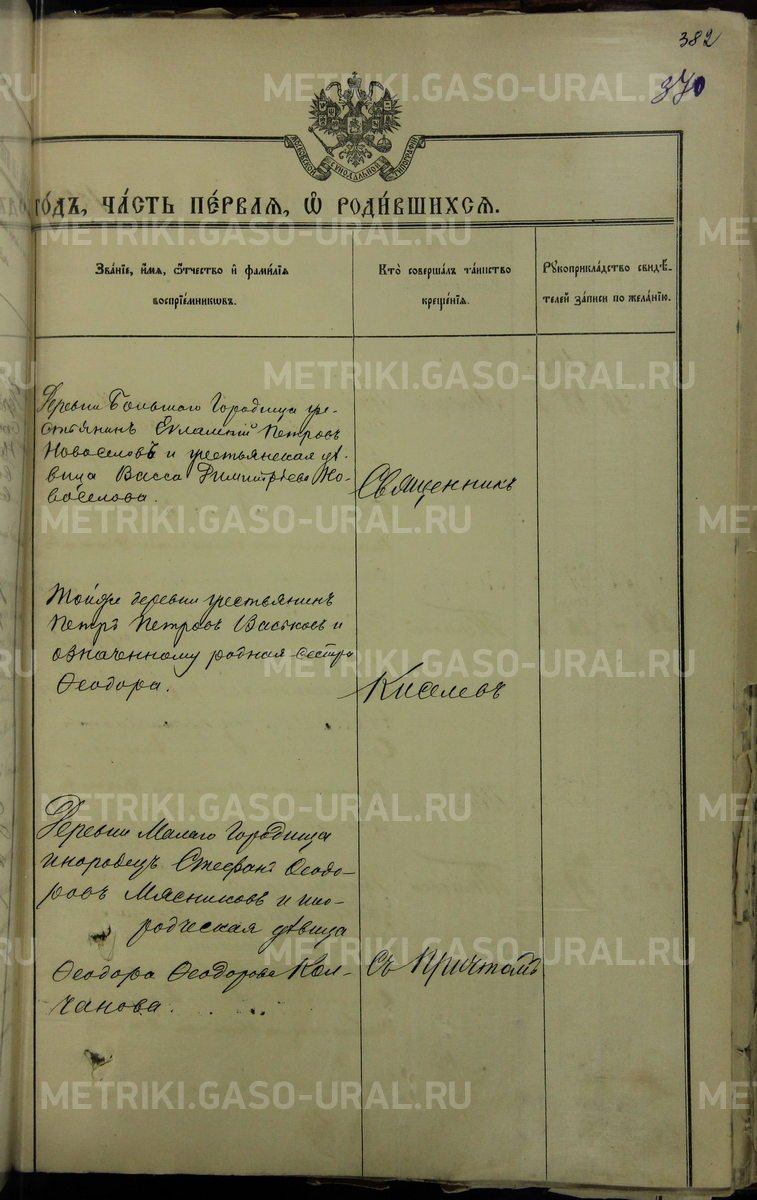 382
370
МОСКОВСКОЙ СѴНОДАЛЬНОЙ ТИПОГРАФІИ
го́дъ, ча́сть пе́рваѧ, ѡ҆ роди́вшихсѧ.
Зва́нїе, и҆́мѧ, ѻ҆́тчество и҆ фами́лїѧ
воспрїе́мникѡвъ.
Кто̀ соверша́лъ та́инство
креще́нїѧ.
Рꙋкоприкла́дство свидѣ́-
телей за́писи по жела́нїю.
Деревни Большаго Городища кре-
стьянинъ Евлампій Петровъ
Новоселовъ и крестьянская дѣ-
вица Васса Димитріева Но-
воселова.
Священникъ
Тойже деревни крестьянинъ
Петръ Петровъ Васьковъ и
означенному родная сестра
Ѳеодора.
Киселевъ
Деревни Малаго Городища
инородецъ Стефанъ Ѳеодо-
ровъ Мясниковъ и ино-
родческая дѣвица
Ѳеодора Ѳеодорова Кол-
чанова.
Съ причтомъ
METRIKI.GASO-URAL.RU